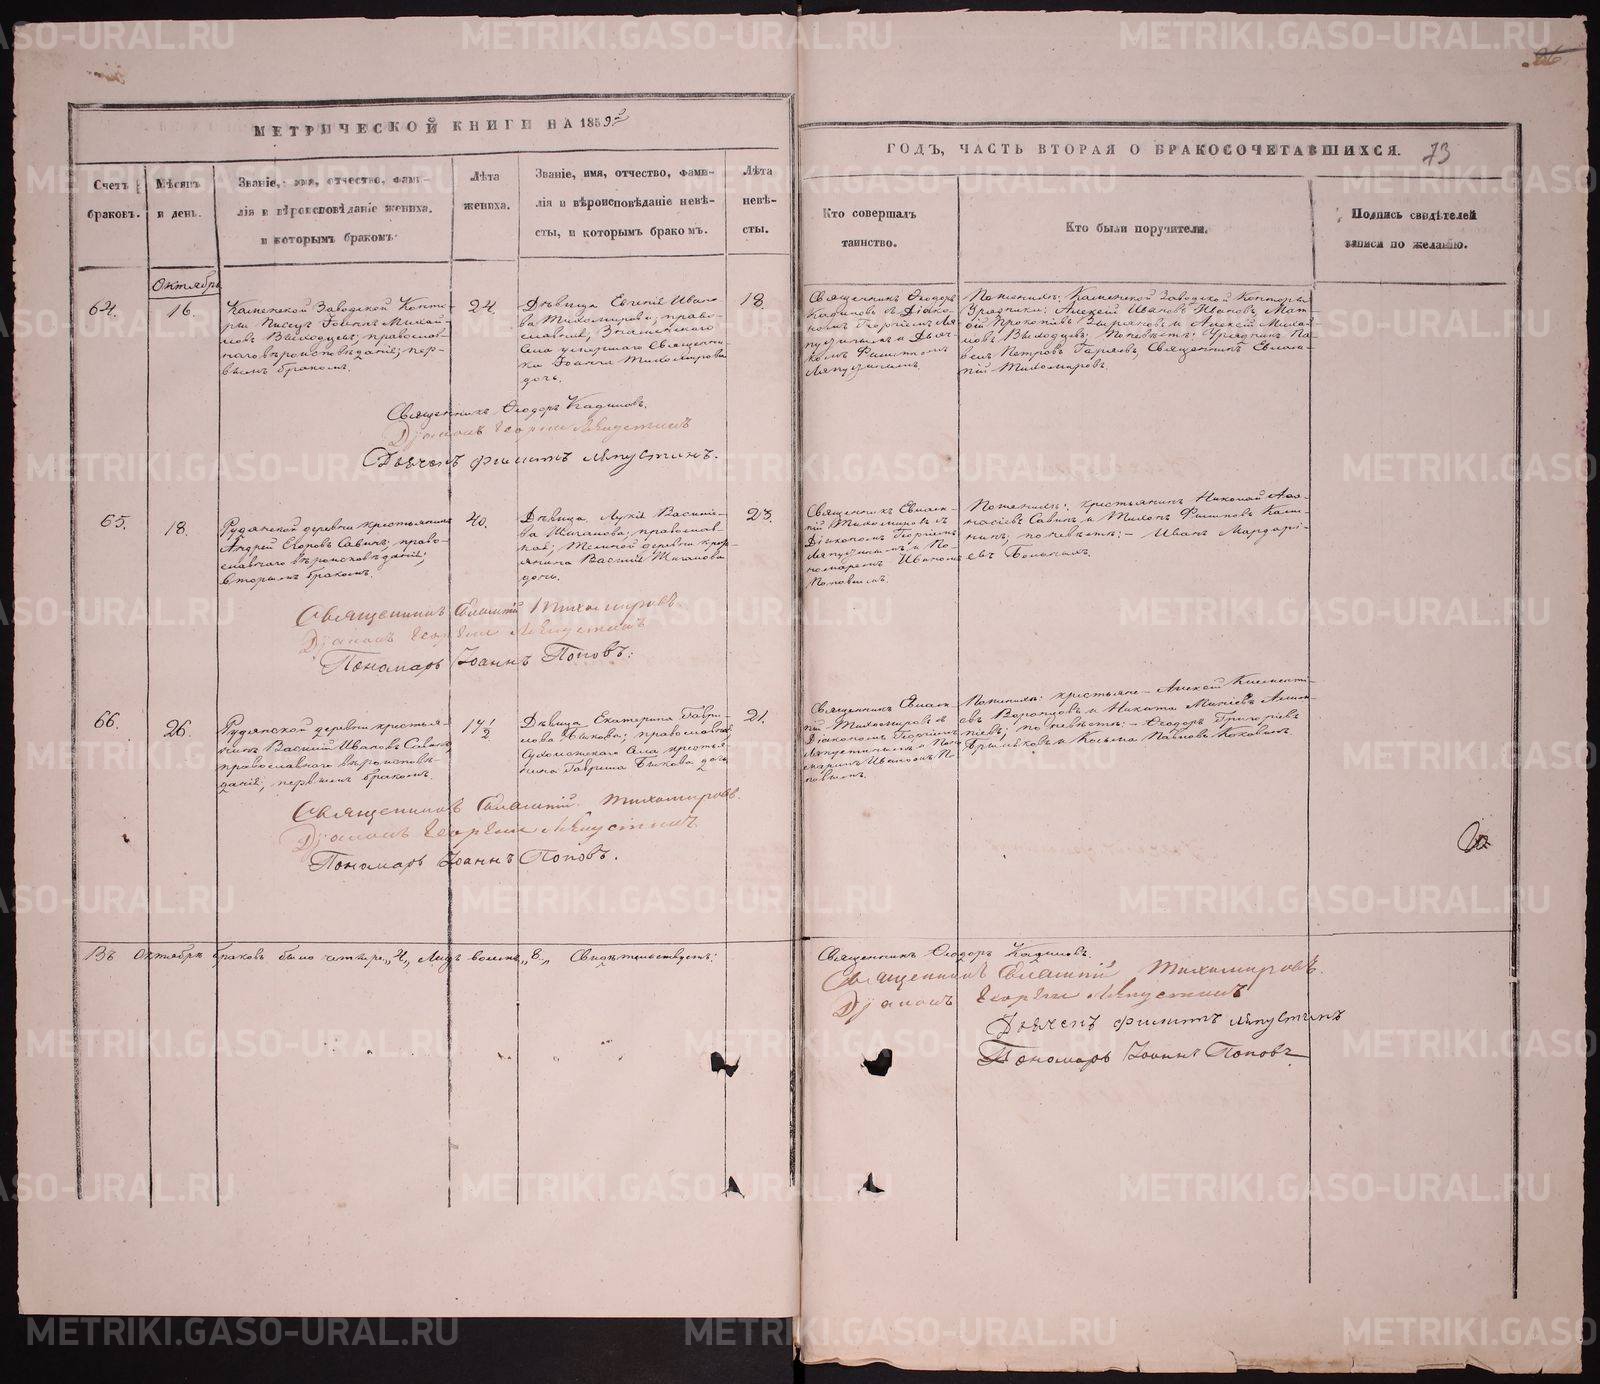 МЕТРИЧЕСКОЙ КНИГИ НА 1859й
ГОДЪ, ЧАСТЬ ВТОРАЯ О БРАКОСОЧЕТАВШИХСЯ. 73
Счетъ браковъ.
Мѣсяцъ и день.
Званіе, имя, отчество, фами-
лія и вѣроисповѣданіе жениха,
и которымъ бракомъ
Лѣта
жениха.
Званіе, имя, отчество, фами-
лія и вѣроисповѣданіе невѣ-
сты, и которымъ бракомъ.
Лѣта
невѣ-
сты.
Кто совершалъ
таинство.
Кто были поручители.
Подпись свидѣтелей
записи по желанію.
Октябрь
64.
16.
Каменской Заводской Конто-
ры Писецъ Іоаннъ Михай-
ловъ Выходцевъ, православ-
наго вѣроисповѣданія, пер-
вымъ бракомъ.
24.
Дѣвица Евгенія Ивано-
ва Тихомирова, право-
славная, Знаменскаго
Села умершаго Священни-
ка Іоанна Тихомирова
дочь.
18
Священникъ Ѳеодоръ
Кадиловъ съ Діако-
номъ Георгіемъ Ля-
пустинымъ и Дьяч-
комъ
Ляпустинымъ.
По женихѣ: Каменской Заводской Конторы
Алексѣй Ивановъ Мат-
ѳій Прокопьевъ Зыряновъ и Алексѣй Михай-
ловъ Выходцевъ; По невѣстѣ: Урядникъ Па-
велъ Петровъ Священникъ Евлам-
пій Тихомировъ.
Священникъ Ѳеодоръ Кадиловъ.
Діаконъ Георгій Ляпустинъ
Дьячекъ Ляпустинъ.
65.
18.
Рудянской деревни крестьянинъ
Андрей Егоровъ Савинъ; право-
славнаго вѣроисповѣданія;
вторымъ бракомъ.
40.
Дѣвица Лукія Василье-
ва Жиганова, православ-
ная; деревни крест-
янина Василія Жиганова
дочь.
23.
Священникъ Евлам-
пій Тихомировъ съ
Діакономъ Георгіемъ
Ляпустинымъ и По-
номаремъ Иваномъ
Поповымъ.
По женихѣ: крестьянинъ Николай Аѳа-
насіевъ Савинъ и Тихонъ Филиповъ Кали-
нинъ; по невѣстѣ: – Иванъ Мардарі-
евъ
Священникъ Евлампій Тихомировъ.
Діаконъ Георгій Ляпустинъ
Пономарь Іоаннъ Поповъ:
66.
26.
Рудянской деревни крестья-
нинъ Василій Ивановъ Савинъ,
православнаго вѣроисповѣ-
данія; первымъ бракомъ.
17 1/2
Дѣвица Екатерина Гаври-
лова Быкова; православная
Сухоложскаго Села крестья-
нина Гавріила Быкова дочь
21.
Священникъ Евлам-
пій Тихомировъ съ
Діакономъ Георгіемъ
Ляпустинымъ и Поно-
маремъ Иваномъ По-
повымъ.
По женихѣ: крестьяне – Алексѣй Клементі-
евъ Воронцовъ и Никита
по невѣстѣ: – Ѳеодоръ Григорьевъ
и Козьма Павловъ
Священникъ Евлампій Тихомировъ.
Діаконъ Георгій Ляпустинъ
Пономарь Іоаннъ Поповъ.
Въ Октябрѣ браковъ было четыре „4„ Лицъ восемь „8„ Свидѣтельствуетъ:
Священникъ Ѳеодоръ Кадиловъ.
Священникъ Евлампій Тихомировъ.
Діаконъ Георгій Ляпустинъ
Дьячекъ Ляпустинъ
Пономарь Іоаннъ Поповъ
METRIKI.GASO-URAL.RU